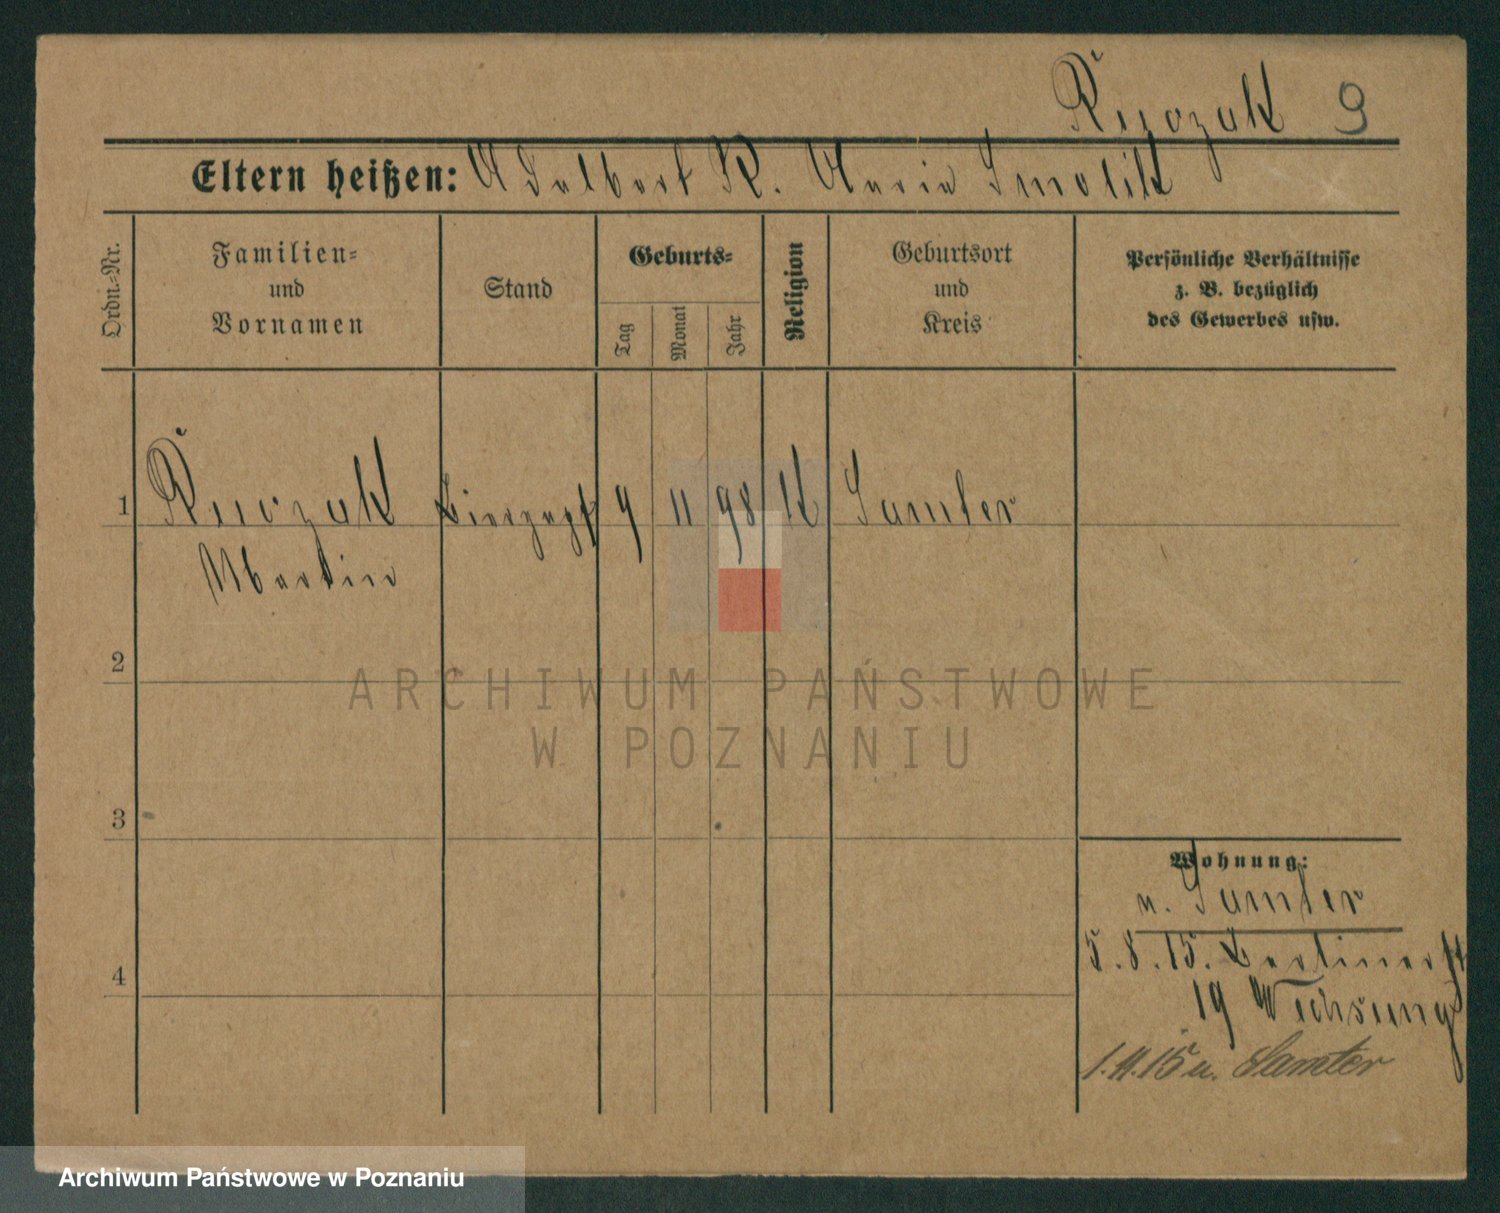 9
Eltern heißen: Adalbert R. Maria Smolik
Ordn.-Nr.
Familien-
und
Vornamen
Stand
Geburts-
Tag
Monat
Jahr
Religion
Geburtsort
und
Kreis
Persönliche Verhältnisse
z. B. bezüglich
des Gewerbes usw.
1
9 11 98 K Samter
Martin
2
3
4
Wohnung:
n. Samter
5.8.15. Berlinerst
19
1.11.15 n. Samter
ARCHIWUM PAŃSTWOWE
W POZNANIU
Archiwum Państwowe w Poznaniu